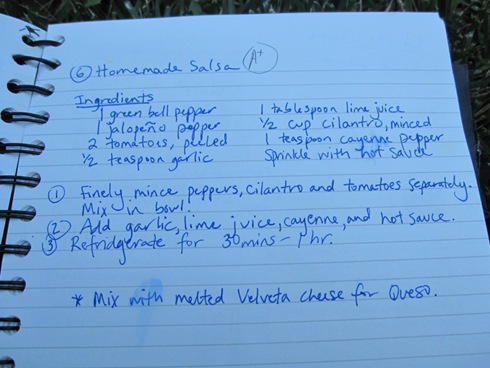 6 Homemade Salsa A+
Ingredients
1 green bell pepper
1 jalapeño pepper
2 tomatoes, peeled
1/2 teaspoon garlic
1 tablespoon lime juice
1/2 cup cilantro, minced
1 teaspoon cayenne pepper
Sprinkle with hot sauce
1 Finely mince peppers, cilantro and tomatoes separately.
Mix in bowl.
2 Add garlic, lime juice, cayenne, and hot sauce.
3 Refridgerate for 30mins - 1 hr.
* Mix with melted Velveta cheese for Queso.